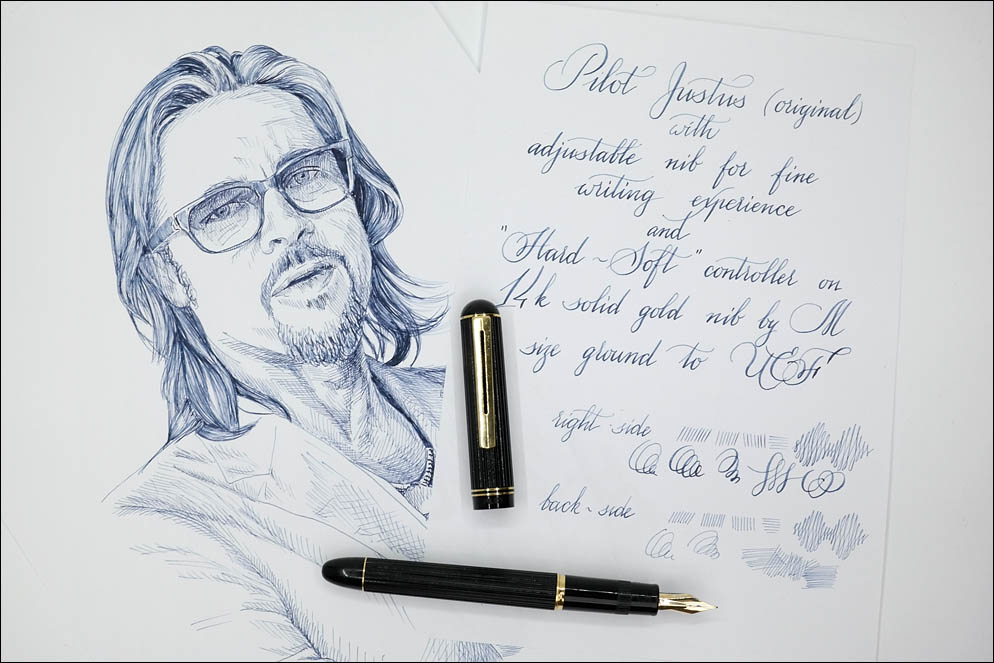 Pilot Justus (original)
with
adjustable nib for fine
writing experience
and
"Hard ~ Soft" controller on
14k solid gold nib by M
size ground to UEF
right-side
back-side